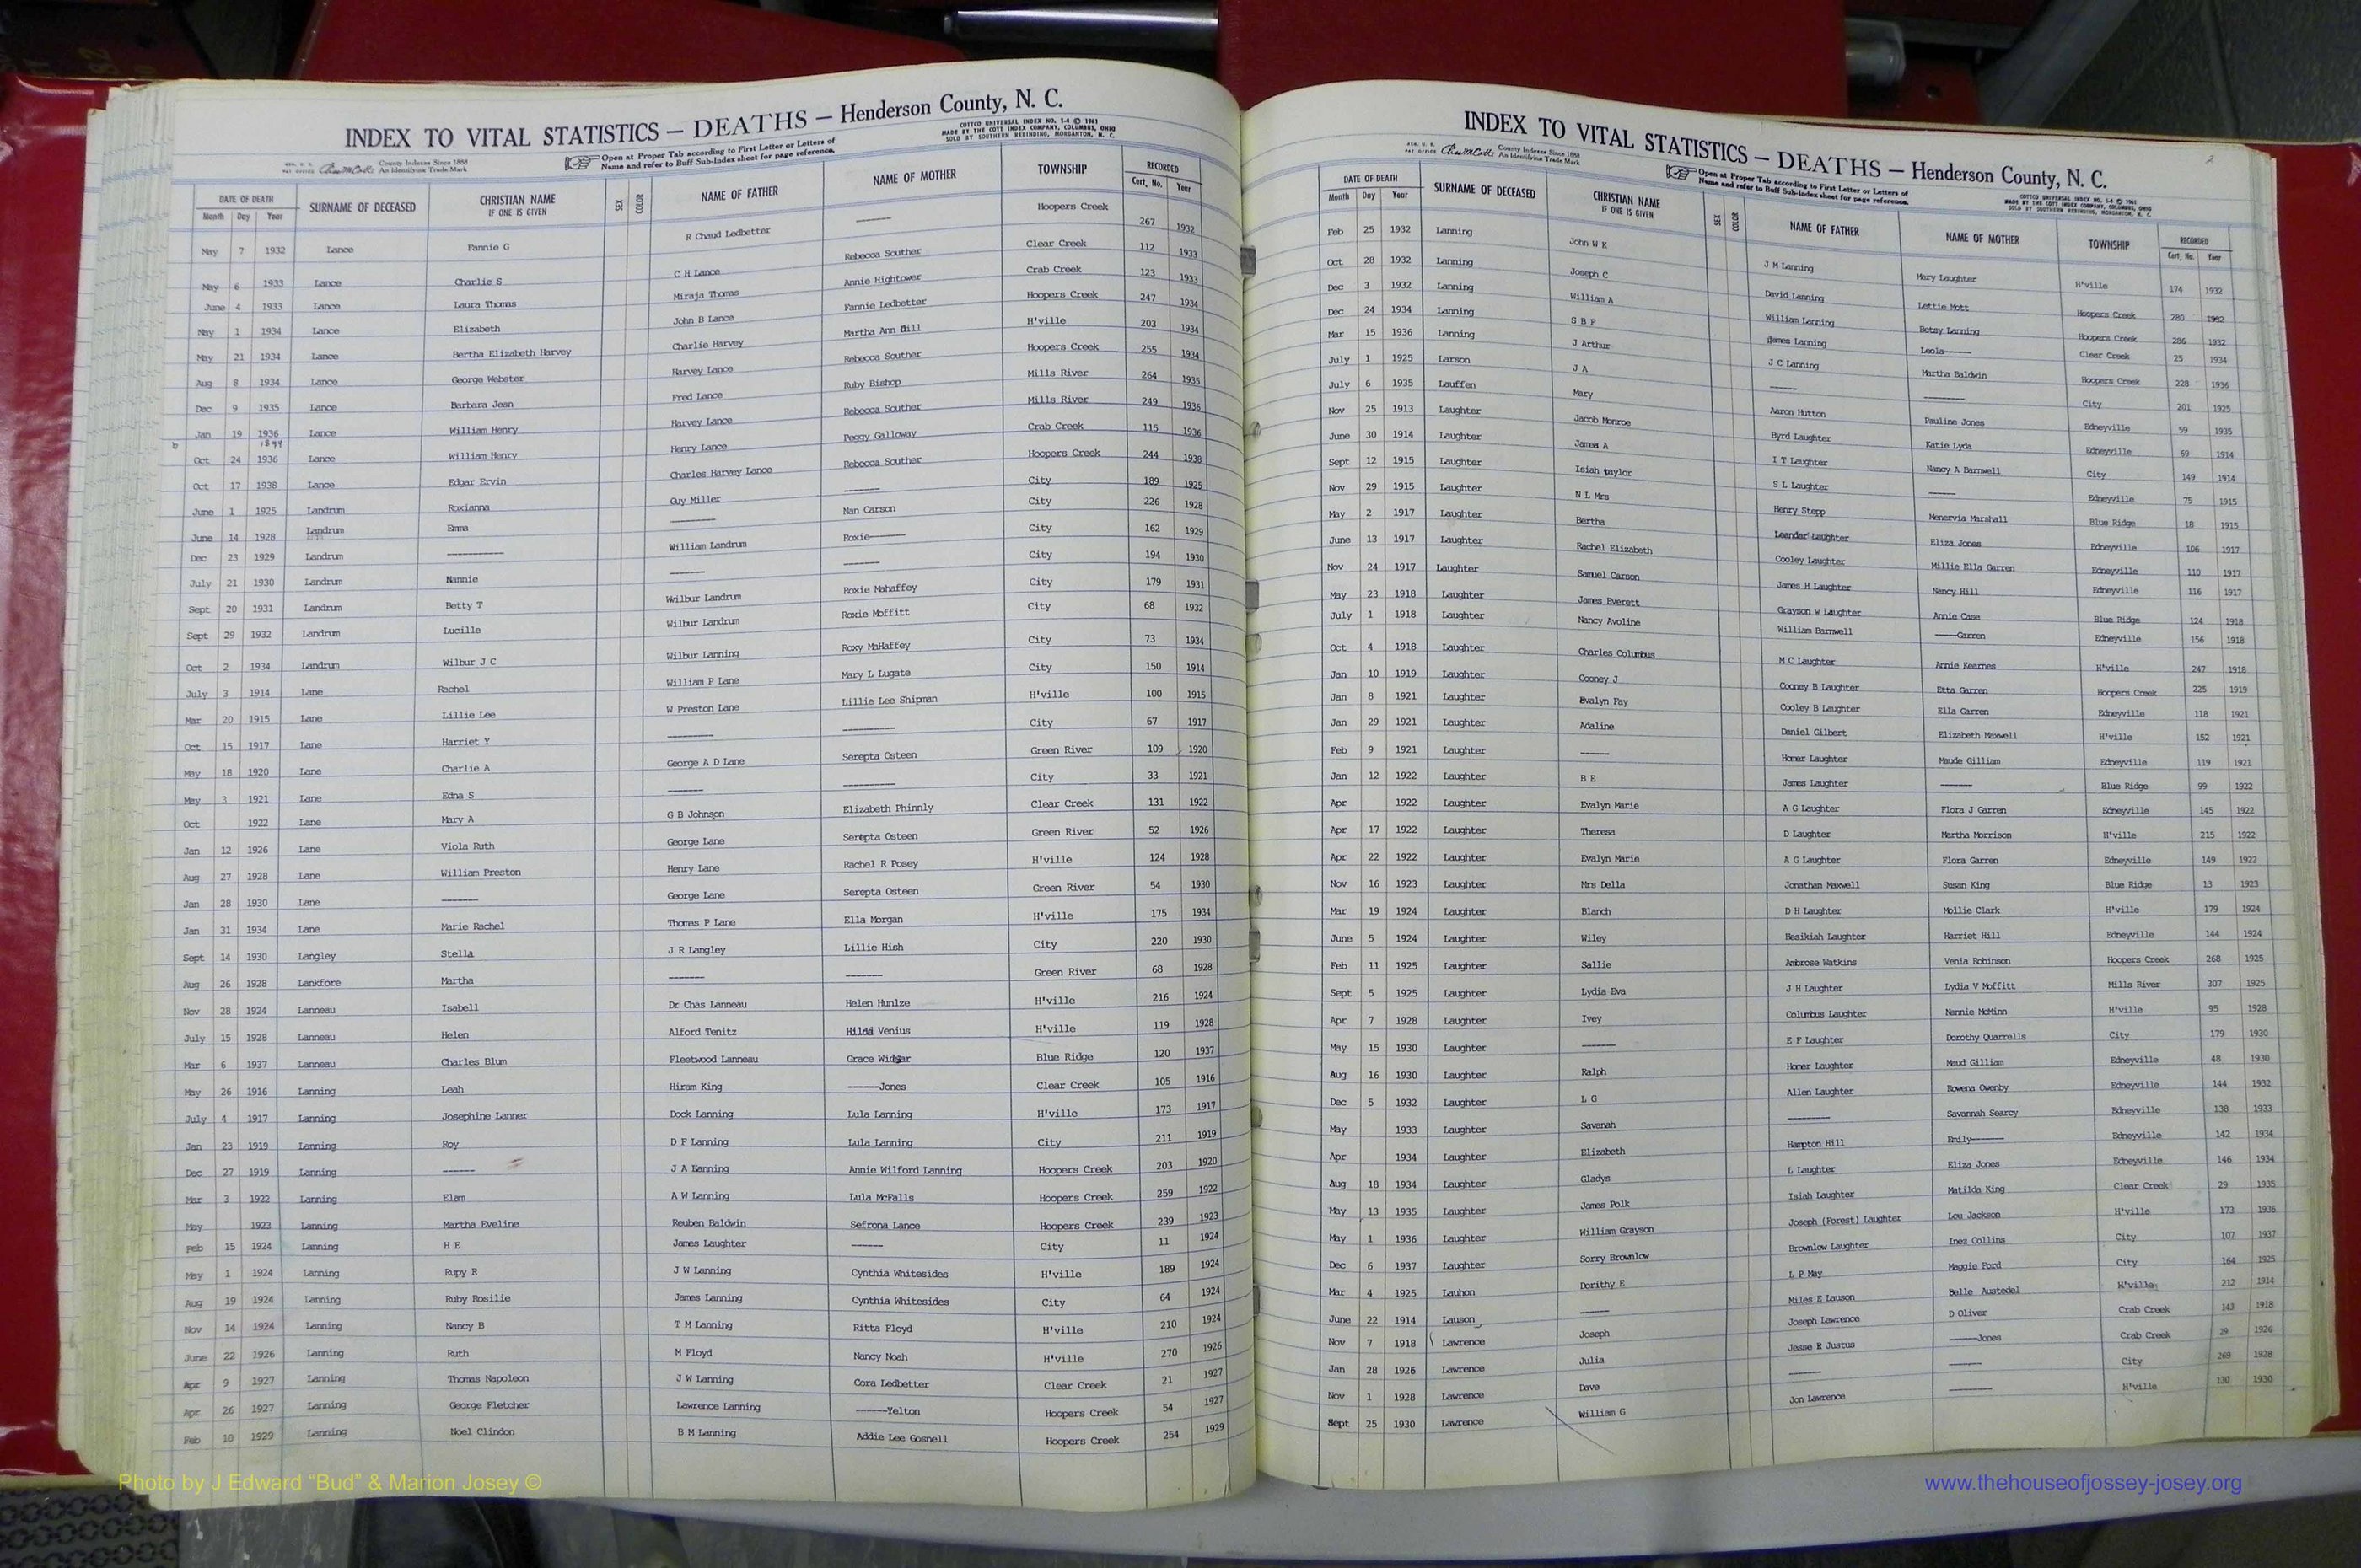 INDEX TO VITAL STATISTICS — DEATHS — Henderson County, N. C.
County Indexes Since 1888 An Identifying Trade Mark
Open at Proper Tab according to First Letter or Letters of Name and refer to Buff Sub-Index sheet for page reference.
COTTCO UNIVERSAL INDEX NO. 1-4 © 1961
MADE BY THE COTT INDEX COMPANY, COLUMBUS, OHIO
SOLD BY SOUTHERN REBINDING, MORGANTON, N. C.
DATE OF DEATH Month Day Year SURNAME OF DECEASED CHRISTIAN NAME IF ONE IS GIVEN SEX COLOR NAME OF FATHER NAME OF MOTHER TOWNSHIP RECORDED Cert. No. Year
May 7 1932 Lance Fannie G R Chaud Ledbetter ------ Hoopers Creek 267 1932
May 6 1933 Lance Charlie S C H Lance Rebecca Souther Clear Creek 112 1933
June 4 1933 Lance Laura Thomas Miraja Thomas Annie Hightower Crab Creek 123 1933
May 1 1934 Lance Elizabeth John B Lance Fannie Ledbetter Hoopers Creek 247 1934
May 21 1934 Lance Bertha Elizabeth Harvey Charlie Harvey Martha Ann Hill H'ville 203 1934
Aug 8 1934 Lance George Webster Harvey Lance Rebecca Souther Hoopers Creek 255 1934
Dec 9 1935 Lance Barbara Jean Fred Lance Ruby Bishop Mills River 264 1935
Jan 19 1936 Lance William Henry Harvey Lance Rebecca Souther Mills River 249 1936
b 1899
Oct 24 1936 Lance William Henry Henry Lance Peggy Galloway Crab Creek 115 1936
Oct 17 1938 Lance Edgar Ervin Charles Harvey Lance Rebecca Souther Hoopers Creek 244 1938
June 1 1925 Landrum Roxianna Guy Miller ------ City 189 1925
June 14 1928 Landrum Emma ------ Nan Carson City 226 1928
Dec 23 1929 Landrum ------ William Landrum Roxie------ City 162 1929
July 21 1930 Landrum Nannie ------ ------ City 194 1930
Sept 20 1931 Landrum Betty T Wilbur Landrum Roxie Mahaffey City 179 1931
Sept 29 1932 Landrum Lucille Wilbur Landrum Roxie Moffitt City 68 1932
Oct 2 1934 Landrum Wilbur J C Wilbur Lanning Roxy MaHaffey City 73 1934
July 3 1914 Lane Rachel William P Lane Mary L Lugate City 150 1914
Mar 20 1915 Lane Lillie Lee W Preston Lane Lillie Lee Shipman H'ville 100 1915
Oct 15 1917 Lane Harriet Y ------ ------ City 67 1917
May 18 1920 Lane Charlie A George A D Lane Serepta Osteen Green River 109 1920
May 3 1921 Lane Edna S ------ ------ City 33 1921
Oct 1922 Lane Mary A G B Johnson Elizabeth Phinnly Clear Creek 131 1922
Jan 12 1926 Lane Viola Ruth George Lane Serepta Osteen Green River 52 1926
Aug 27 1928 Lane William Preston Henry Lane Rachel R Posey H'ville 124 1928
Jan 28 1930 Lane ------ George Lane Serepta Osteen Green River 54 1930
Jan 31 1934 Lane Marie Rachel Thomas P Lane Ella Morgan H'ville 175 1934
Sept 14 1930 Langley Stella J R Langley Lillie Hish City 220 1930
Aug 26 1928 Lankfore Martha ------ ------ Green River 68 1928
Nov 28 1924 Lanneau Isabell Dr Chas Lanneau Helen Hunlze H'ville 216 1924
July 15 1928 Lanneau Helen Alford Tenitz Hilda Venius H'ville 119 1928
Mar 6 1937 Lanneau Charles Blum Fleetwood Lanneau Grace Blue Ridge 120 1937
May 26 1916 Lanning Leah Hiram King ------Jones Clear Creek 105 1916
July 4 1917 Lanning Josephine Lanner Dock Lanning Lula Lanning H'ville 173 1917
Jan 23 1919 Lanning Roy D F Lanning Lula Lanning City 211 1919
Dec 27 1919 Lanning ------ J A Lanning Annie Wilford Lanning Hoopers Creek 203 1920
Mar 3 1922 Lanning Elam A W Lanning Lula McFalls Hoopers Creek 259 1922
May 1923 Lanning Martha Eveline Reuben Baldwin Sefrona Lance Hoopers Creek 239 1923
Feb 15 1924 Lanning H E James Laughter ------ City 11 1924
May 1 1924 Lanning Rupy R J W Lanning Cynthia Whitesides H'ville 189 1924
Aug 19 1924 Lanning Ruby Rosilie James Lanning Cynthia Whitesides City 64 1924
Nov 14 1924 Lanning Nancy B T M Lanning Ritta Floyd H'ville 210 1924
June 22 1926 Lanning Ruth M Floyd Nancy Noah H'ville 270 1926
Apr 9 1927 Lanning Thomas Napoleon J W Lanning Cora Ledbetter Clear Creek 21 1927
Apr 26 1927 Lanning George Fletcher Lawrence Lanning ------Yelton Hoopers Creek 54 1927
Feb 10 1929 Lanning Noel Clindon B M Lanning Addie Lee Gosnell Hoopers Creek 254 1929
2
INDEX TO VITAL STATISTICS — DEATHS — Henderson County, N. C.
County Indexes Since 1888 An Identifying Trade Mark
Open at Proper Tab according to First Letter or Letters of Name and refer to Buff Sub-Index sheet for page reference.
COTTCO UNIVERSAL INDEX NO. 1-4 © 1961
MADE BY THE COTT INDEX COMPANY, COLUMBUS, OHIO
SOLD BY SOUTHERN REBINDING, MORGANTON, N. C.
DATE OF DEATH Month Day Year SURNAME OF DECEASED CHRISTIAN NAME IF ONE IS GIVEN SEX COLOR NAME OF FATHER NAME OF MOTHER TOWNSHIP RECORDED Cert. No. Year
Feb 25 1932 Lanning John W K J M Lanning Mary Laughter H'ville 174 1932
Oct 28 1932 Lanning Joseph C David Lanning Lettie Mott Hoopers Creek 280 1932
Dec 3 1932 Lanning William A William Lanning Betsy Lanning Hoopers Creek 286 1932
Dec 24 1934 Lanning S B F James Lanning Leola------ Clear Creek 25 1934
Mar 15 1936 Lanning J Arthur J C Lanning Martha Baldwin Hoopers Creek 228 1936
July 1 1925 Larson J A ------ ------ City 201 1925
July 6 1935 Lauffen Mary Aaron Hutton Pauline Jones Edneyville 59 1935
Nov 25 1913 Laughter Jacob Monroe Byrd Laughter Katie Lyda Edneyville 69 1914
June 30 1914 Laughter James A I T Laughter Nancy A Barnwell City 149 1914
Sept 12 1915 Laughter Isiah taylor S L Laughter ------ Edneyville 75 1915
Nov 29 1915 Laughter N L Mrs Henry Stepp Menervia Marshall Blue Ridge 18 1915
May 2 1917 Laughter Bertha Leander Laughter Eliza Jones Edneyville 106 1917
June 13 1917 Laughter Rachel Elizabeth Cooley Laughter Millie Ella Garren Edneyville 110 1917
Nov 24 1917 Laughter Samuel Carson James H Laughter Nancy Hill Edneyville 116 1917
May 23 1918 Laughter James Everett Grayson w Laughter Annie Case Blue Ridge 124 1918
July 1 1918 Laughter Nancy Avoline William Barnwell ------Garren Edneyville 156 1918
Oct 4 1918 Laughter Charles Columbus M C Laughter Annie Kearnes H'ville 247 1918
Jan 10 1919 Laughter Cooney J Cooney B Laughter Etta Garren Hoopers Creek 225 1919
Jan 8 1921 Laughter Evalyn Fay Cooley B Laughter Ella Garren Edneyville 118 1921
Jan 29 1921 Laughter Adaline Daniel Gilbert Elizabeth Maxwell H'ville 152 1921
Feb 9 1921 Laughter ------ Homer Laughter Maude Gilliam Edneyville 119 1921
Jan 12 1922 Laughter B E James Laughter ------ Blue Ridge 99 1922
Apr 1922 Laughter Evalyn Marie A G Laughter Flora J Garren Edneyville 145 1922
Apr 17 1922 Laughter Theresa D Laughter Martha Morrison H'ville 215 1922
Apr 22 1922 Laughter Evalyn Marie A G Laughter Flora Garren Edneyville 149 1922
Nov 16 1923 Laughter Mrs Della Jonathan Maxwell Susan King Blue Ridge 13 1923
Mar 19 1924 Laughter Blanch D H Laughter Mollie Clark H'ville 179 1924
June 5 1924 Laughter Wiley Hesikiah Laughter Harriet Hill Edneyville 144 1924
Feb 11 1925 Laughter Sallie Ambrose Watkins Venia Robinson Hoopers Creek 268 1925
Sept 5 1925 Laughter Lydia Eva J H Laughter Lydia V Moffitt Mills River 307 1925
Apr 7 1928 Laughter Ivey Columbus Laughter Nannie McMinn H'ville 95 1928
May 15 1930 Laughter ------ E F Laughter Dorothy Quarrells City 179 1930
Aug 16 1930 Laughter Ralph Homer Laughter Maud Gilliam Edneyville 48 1930
Dec 5 1932 Laughter L G Allen Laughter Rowena Owenby Edneyville 144 1932
May 1933 Laughter Savanah ------ Savannah Searcy Edneyville 138 1933
Apr 1934 Laughter Elizabeth Hampton Hill Emily------ Edneyville 142 1934
Aug 18 1934 Laughter Gladys L Laughter Eliza Jones Edneyville 146 1934
May 13 1935 Laughter James Polk Isiah Laughter Matilda King Clear Creek 29 1935
May 1 1936 Laughter William Grayson Joseph (Forest) Laughter Lou Jackson H'ville 173 1936
Dec 6 1937 Laughter Sorry Brownlow Brownlow Laughter Inez Collins City 107 1937
Mar 4 1925 Lauhon Dorithy E L P May Maggie Ford City 164 1925
June 22 1914 Lauson ------ Miles E Lauson Belle Austedel H'ville 212 1914
Nov 7 1918 Lawrence Joseph Joseph Lawrence D Oliver Crab Creek 143 1918
Jan 28 1926 Lawrence Julia Jesse R Justus ------Jones Crab Creek 29 1926
Nov 1 1928 Lawrence Dave ------ ------ City 269 1928
Sept 25 1930 Lawrence William G Jon Lawrence ------ H'ville 130 1930
Photo by J Edward “Bud” & Marion Josey ©
www.thehouseofjossey-josey.org